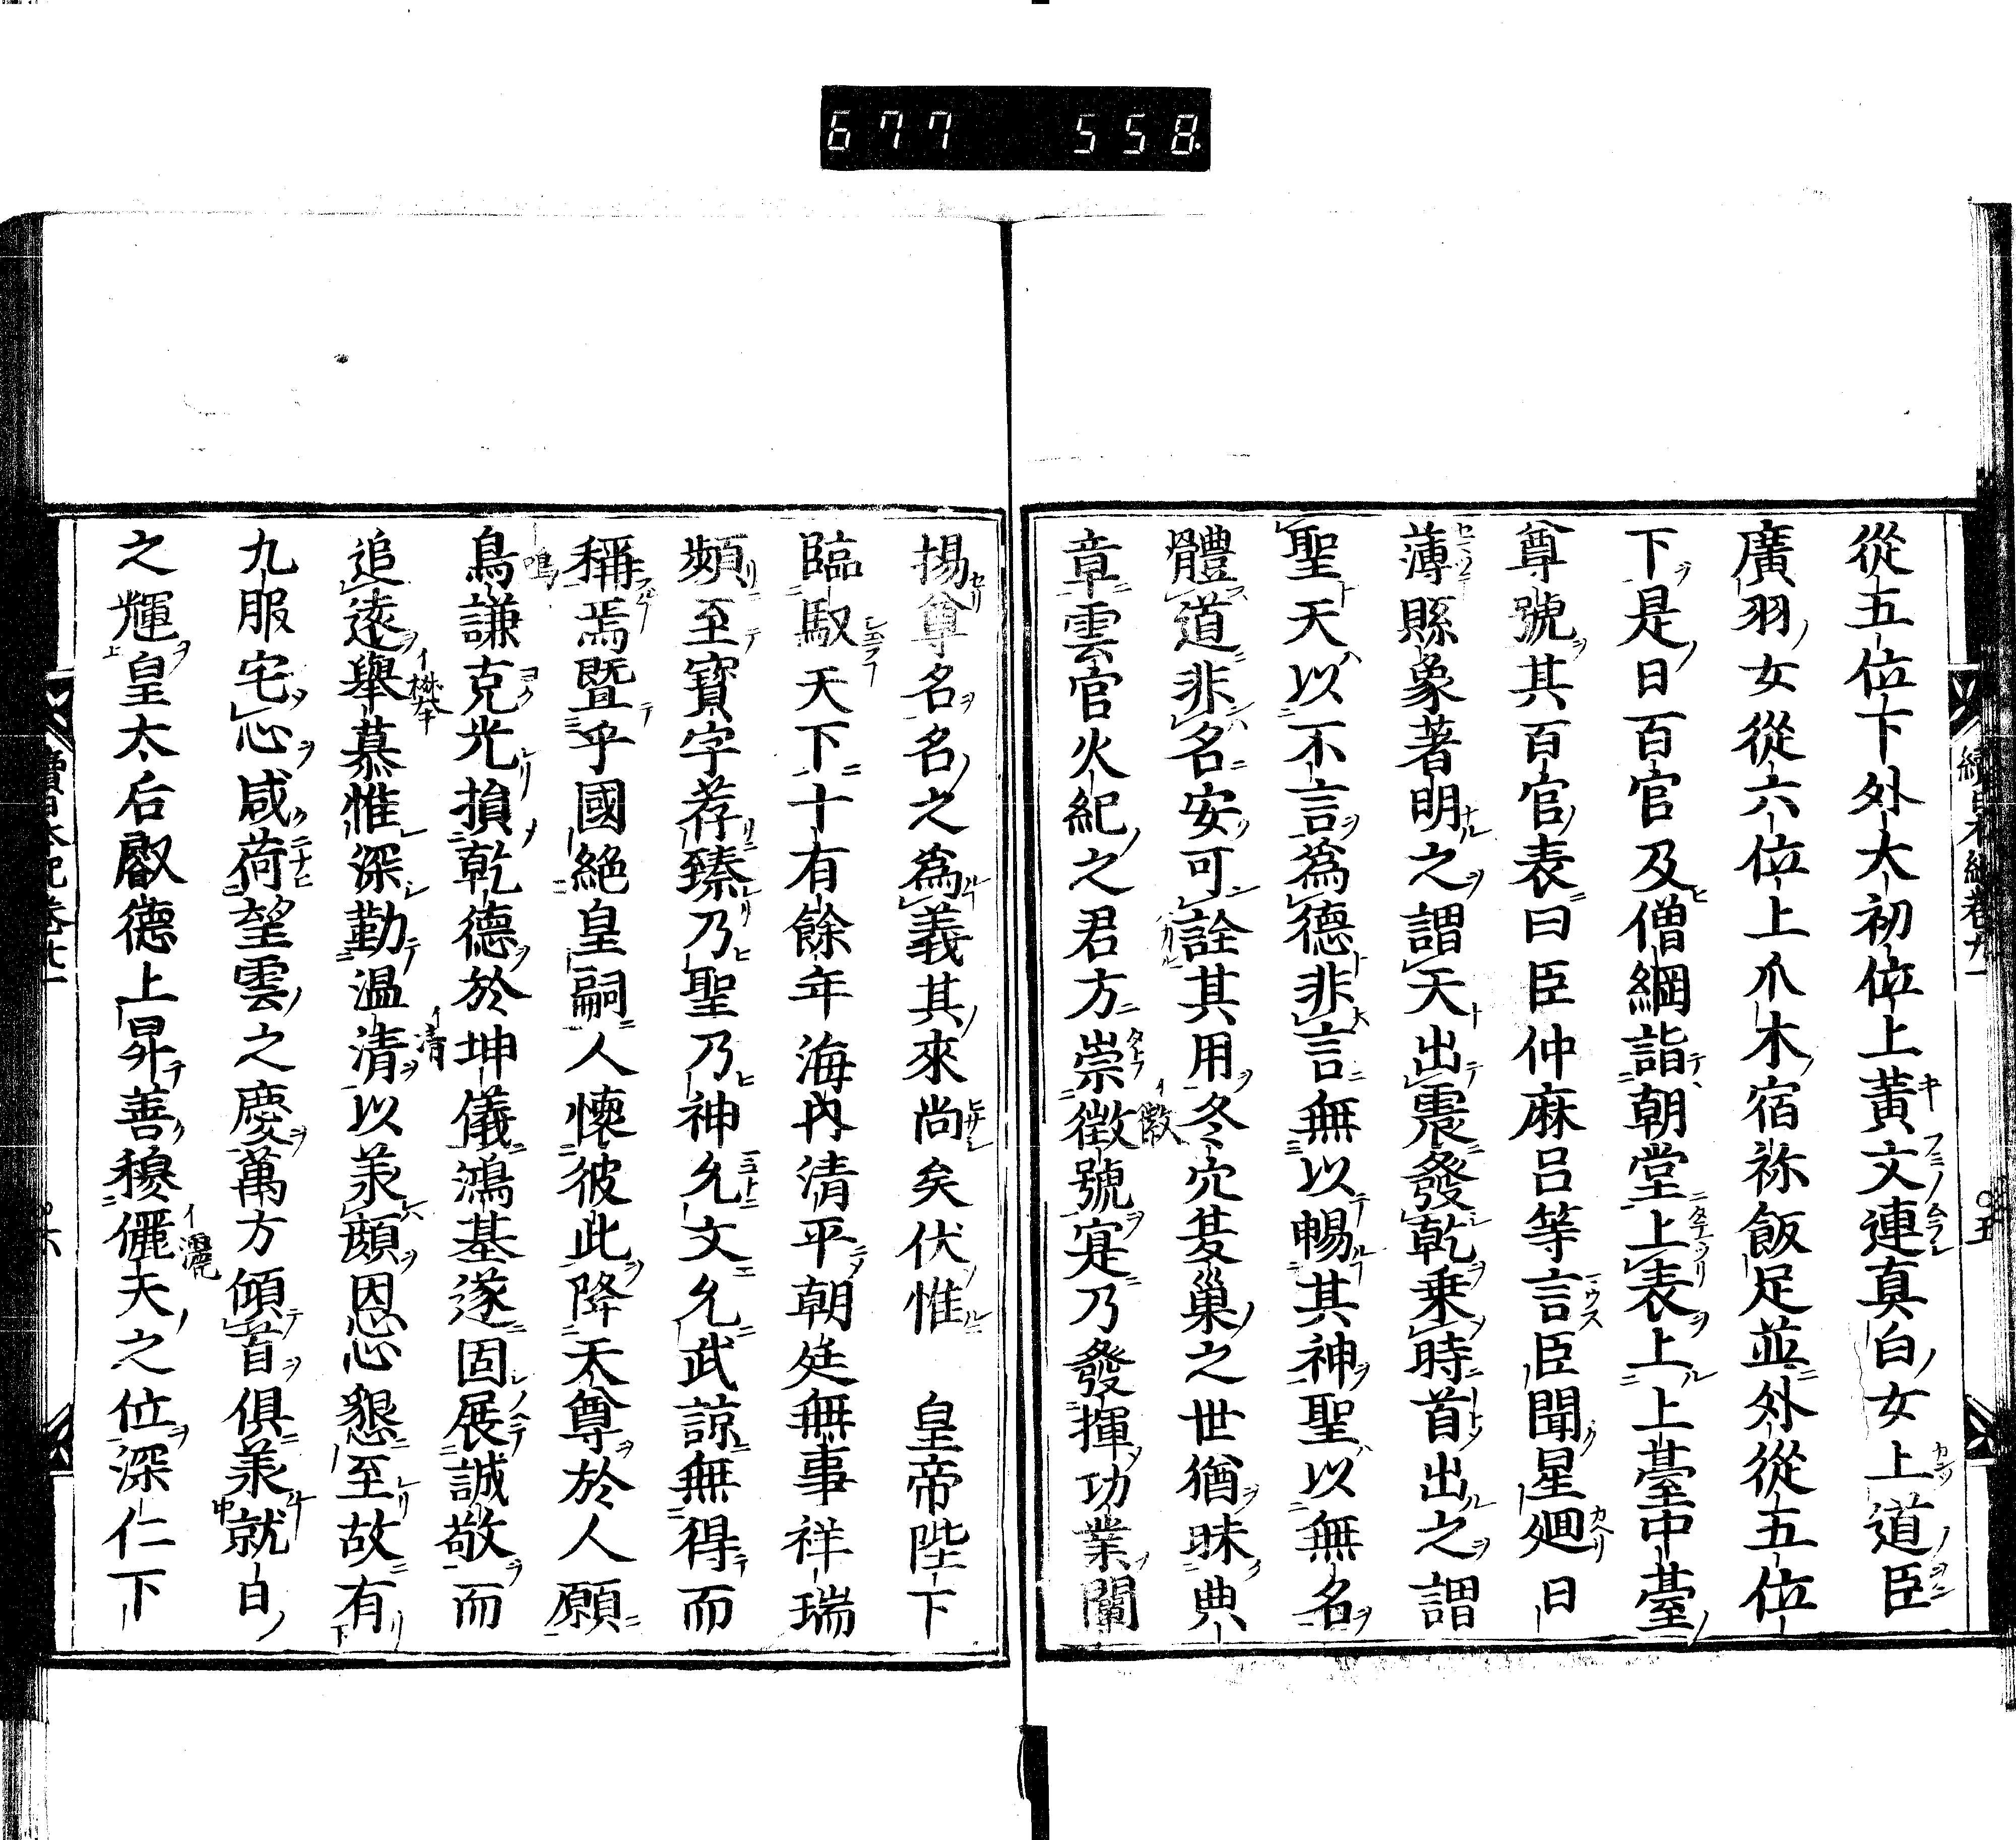 677 558
從五位下外大初位上黃文連真白女上道臣
廣羽女從六位上爪木宿祢飯足並外從五位
下是日百官及僧綱詣朝堂上表上上臺中臺
尊號其百官表曰臣仲麻呂等言臣聞星廻日
薄懸象著明之謂天出震發乾乗時首出之謂
聖天以不言為德非言無以暢其神聖以無名
體道非名安可詮其用冬穴夏巢之世猶昧典
章雲官火紀之君方崇徵號寔乃發揮功業闡
揚尊名名之為義其來尚矣伏惟　皇帝陛下
臨馭天下十有餘年海內清平朝廷無事祥瑞
頻至寶字荐臻乃聖乃神允文允武諒無得而
稱焉暨乎國絕皇嗣人懷彼此降天尊於人願
鳥謙克光損乾德於坤儀鴻基遂固展誠敬而
追遠舉慕惟深勤温清以羕顔因心懇至故有
九服宅心咸荷望雲之慶萬方傾首俱羕就日
之輝皇太后叡德上昇善穆儷天之位深仁下